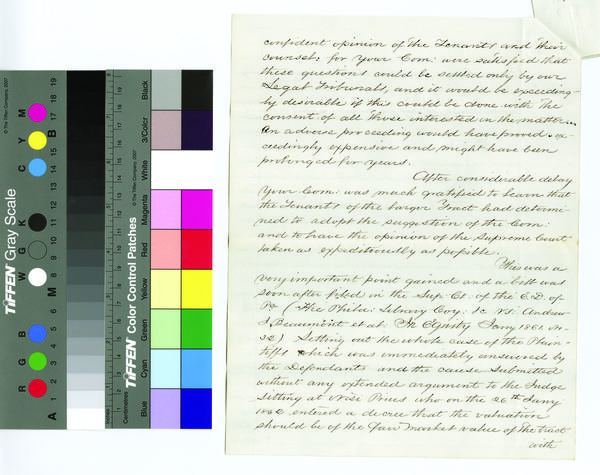 confident opinion of the Tenants and their
counsel; for your Com: were satisfied that
these questions could be settled only by our
Legal Tribunals, and it would be exceeding-
ly desirable if this could be done with the
consent of all those interested in the matter.
An adverse proceeding would have proved ex-
ceedingly expensive and might have been
prolonged for years.
After considerable delay
your Com: was much gratified to learn that
the Tenants of the larger Tract had determi-
ned to adopt the suggestion of the Com:
and to have the opinion of the Supreme Court
taken as expeditiously as possible.
This was a
very important point gained and a bill was
soon after filed in the Sup: Ct: of the E.D. of
Pa (The Phila: Library Coy: &c vs. Andrew
J. Beaumont et al: In Equity Jany 1861. No.
32) Setting out the whole case of the Plain-
tiffs which was immediately answered by
the Defendants and the cause submitted
without any extended argument to the Judge
sitting at Nisi Prius who on the 26th Jany
entered a decree that the valuation
should be of the fair market value of the tract
with
© The Tiffen Company, 2007
TIFFEN Gray Scale
R G B W G K C Y M
A 1 2 3 4 5 6 M 8 9 10 11 12 13 14 15 B 17 18 19
TIFFEN Color Control Patches
© The Tiffen Company, 2007
Inches
Centimetres
Blue
Cyan
Green
Yellow
Red
Magenta
White
3/Color
Black